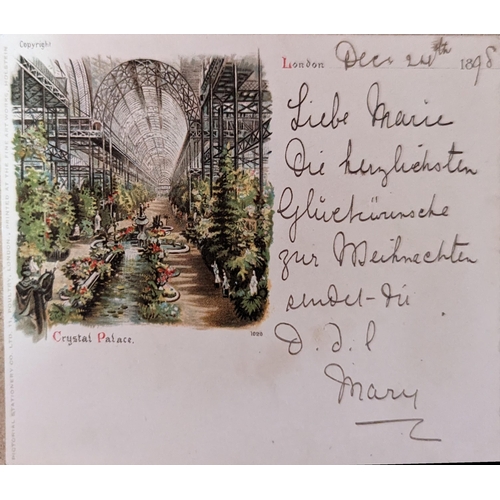 Copyright
London Dec 24th 1898
Liebe Marie
Die herzlichsten
Glückwünsche
zur Weihnachten
sendet die
D. d. l
Mary
Crystal Palace.